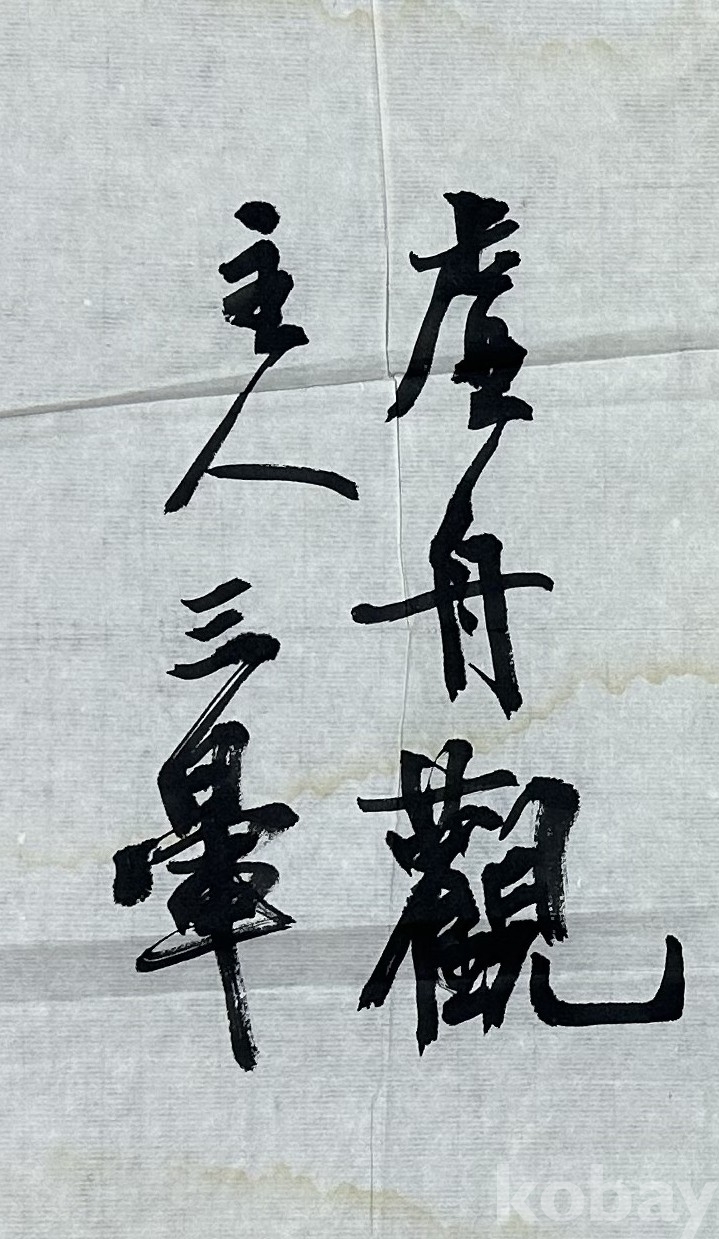 虛舟觀
主人三暈
kobay